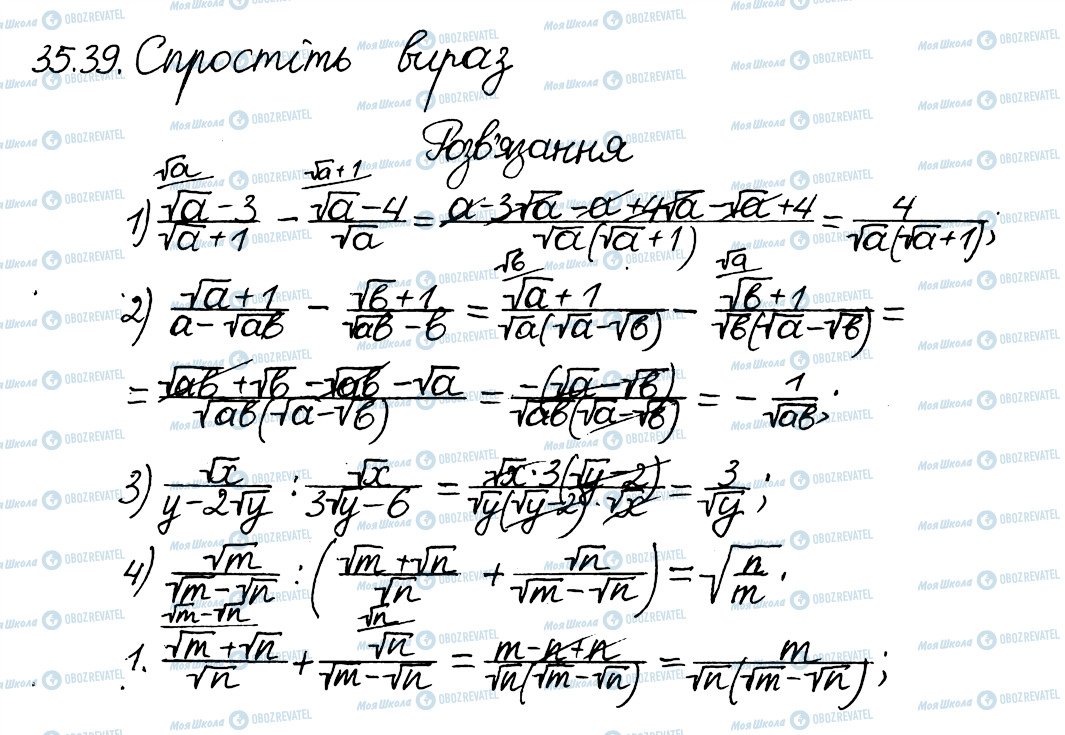 35.39. Спростіть вираз
Розв'язання
1) (√a - 3)/(√a + 1) - (√a - 4)/√a = (a - 3√a - a + 4√a - √a + 4)/(√a(√a + 1)) = 4/(√a(√a + 1));
2) (√a + 1)/(a - √ab) - (√b + 1)/(√ab - b) = (√a + 1)/(√a(√a - √b)) - (√b + 1)/(√b(√a - √b)) =
= (√ab + √b - √ab - √a)/(√ab(√a - √b)) = -(√a - √b)/(√ab(√a - √b)) = - 1/√ab;
3) √x/(y - 2√y) : √x/(3√y - 6) = (√x · 3(√y - 2))/(√y(√y - 2) · √x) = 3/√y;
4) √m/(√m - √n) : ((√m + √n)/√n + √n/(√m - √n)) = √(n/m).
1. (√m + √n)/√n + √n/(√m - √n) = (m - n + n)/(√n(√m - √n)) = m/(√n(√m - √n));